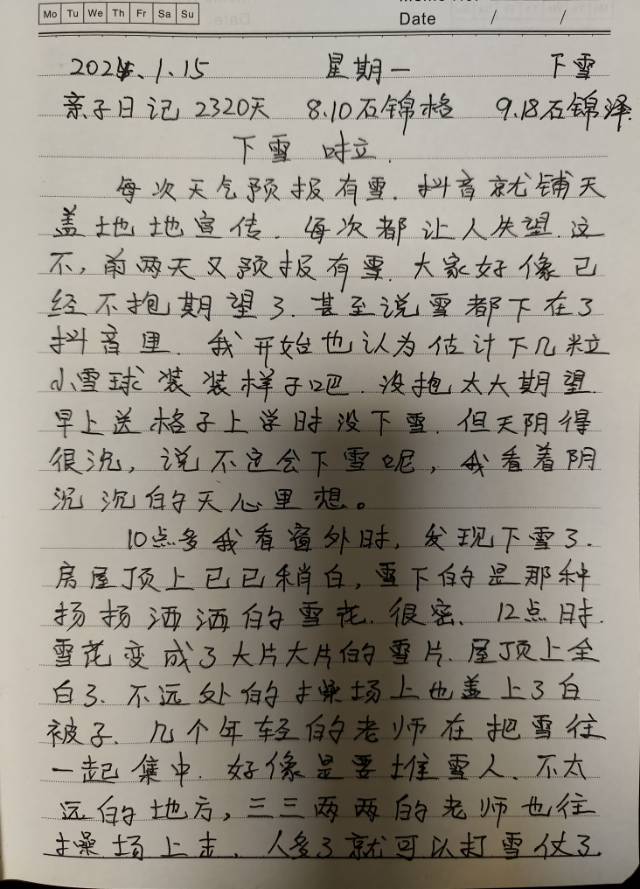 Mo Tu We Th Fr Sa Su
Date / /
2024.1.15 星期一 下雪
亲子日记 2320天 8.10石锦格 9.18石锦泽
下雪啦.
每次天气预报有雪.抖音就铺天
盖地地宣传.每次都让人失望.这
不,前两天又预报有雪.大家好像已
经不抱期望了.甚至说雪都下在了
抖音里.我开始也认为估计下几粒
小雪球装装样子吧.没抱太大期望.
早上送格子上学时没下雪.但天阴得
很沉,说不定会下雪呢,我看着阴
沉沉的天心里想。
10点多我看窗外时,发现下雪了.
房屋顶上已已稍白,雪下的是那种
扬扬洒洒的雪花.很密.12点时.
雪花变成了大片大片的雪片.屋顶上全
白了.不远处的操场上也盖上了白
被子.几个年轻的老师在把雪往
一起集中.好像是要堆雪人.不太
远的地方,三三两两的老师也往
操场上走.人多了就可以打雪仗了.